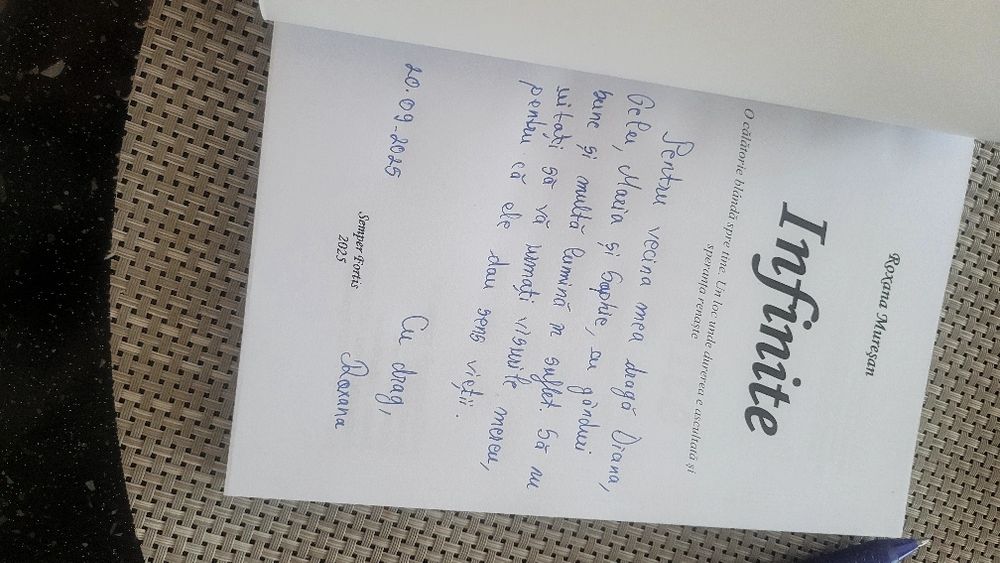 Roxana Mureșan
Infinite
O călătorie blândă spre tine. Un loc unde durerea e ascultată și
speranța renaște
Pentru vecina mea dragă Diana,
Gelu, Maria și Sophie, cu gânduri
bune și multă lumină n suflet. Să nu
uitați să vă urmați visurile mereu,
pentru că ele dau sens vieții.
20.09-2025
Cu drag,
Roxana
Semper Fortis
2025